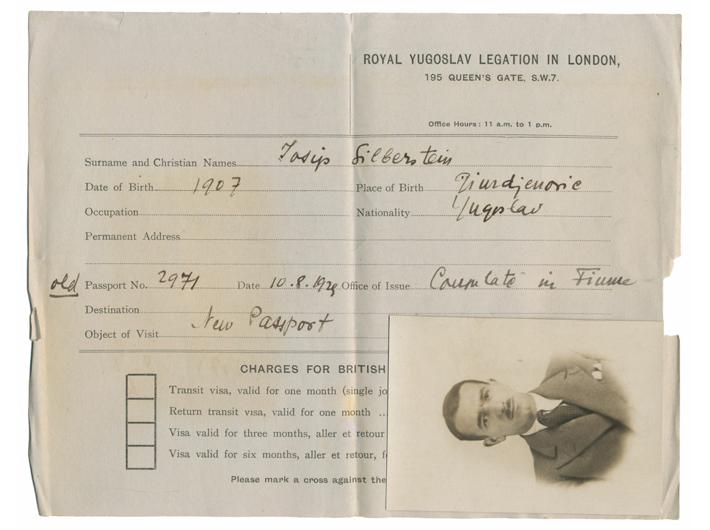 ROYAL YUGOSLAV LEGATION IN LONDON,
195 QUEEN'S GATE, S.W.7.
Office Hours: 11 a.m. to 1 p.m.
Surname and Christian Names Josip Silberstein
Date of Birth 1907 Place of Birth Djurdjenovic
Occupation Nationality Yugoslav
Permanent Address
old Passport No. 2971 Date 10.8.1929 Office of Issue Consulate in Fiume
Destination
Object of Visit New Passport
CHARGES FOR BRITISH
Transit visa, valid for one month (single jo
Return transit visa, valid for one month ...
Visa valid for three months, aller et retour
Visa valid for six months, aller et retour, f
Please mark a cross against the